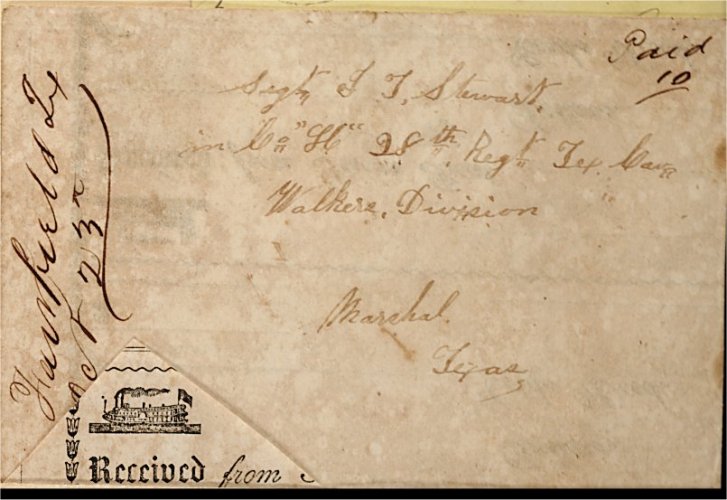 Paid
10
Sergt J T, Stewart,
in Co "H" 28th Regt Tex Cav
Walkers, Division
Marshal.
Texas
Fairfield Tx
Oct 23rd
Received from